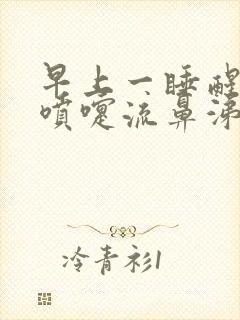 早上一睡醒
喷嚏流鼻涕
冷青衫1